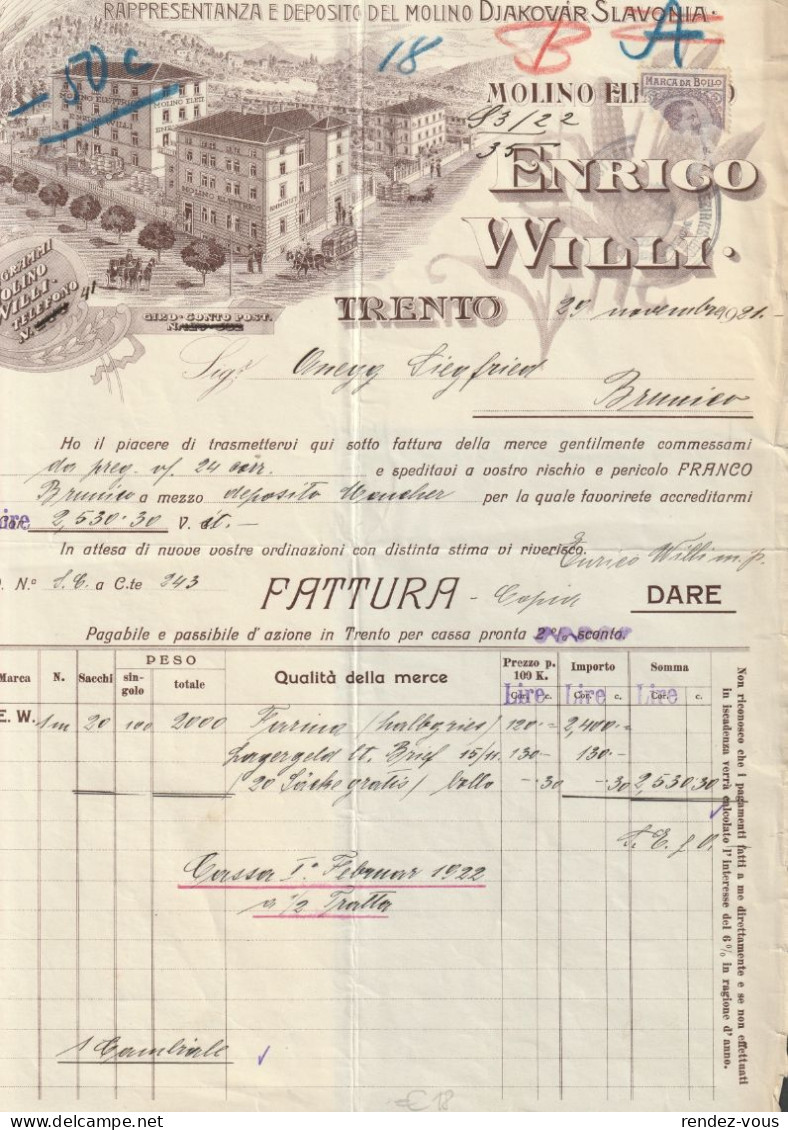 RAPPRESENTANZA E DEPOSITO DEL MOLINO DJAKOVÁR SLAVONIA.
50 c 18 B A
MARCA DA BOLLO
MOLINO ELE
S3/22
35
ENRICO
WILLI.
MOLINO ELETTRICO
MOLINO
WILLI
TELEFONO
N. 41
GIRO-CONTO POST.
TRENTO 29 novembre 1921.-
Sigr. Siegfried
Brunico
Ho il piacere di trasmettervi qui sotto fattura della merce gentilmente commessami
da preg. v/. 24 corr. e speditavi a vostro rischio e pericolo FRANCO
Brunico a mezzo deposito per la quale favorirete accreditarmi
Lire 2,530.30 V. it.-
In attesa di nuove vostre ordinazioni con distinta stima vi riverisco.
Enrico Willi m.p.
N.º S.C. a C.te 243 FATTURA - Copia DARE
Pagabile e passibile d'azione in Trento per cassa pronta 2% sconto.
Marca N. Sacchi PESO singolo totale Qualità della merce Prezzo p. 100 K. Importo Somma
Lire Lire Lire
Cor. c. Cor. c. Cor. c.
E. W. 1m 20 100 2000 Farina (halbgries) 120.- 2,400.-
Lagergeld lt. Brief 15/11 130.- 130.-
(20 Säcke gratis) bollo -.30 -.30 2,530.30
S. E. & O.
Cassa Iº Februar 1922
a 1/2 Tratta
1 Cambiale
Non riconosco che i pagamenti fatti a me direttamente e se non effettuati
in iscadenza verrà calcolato l'interesse del 6% in ragione d'anno.
€ 18
rendez-vous